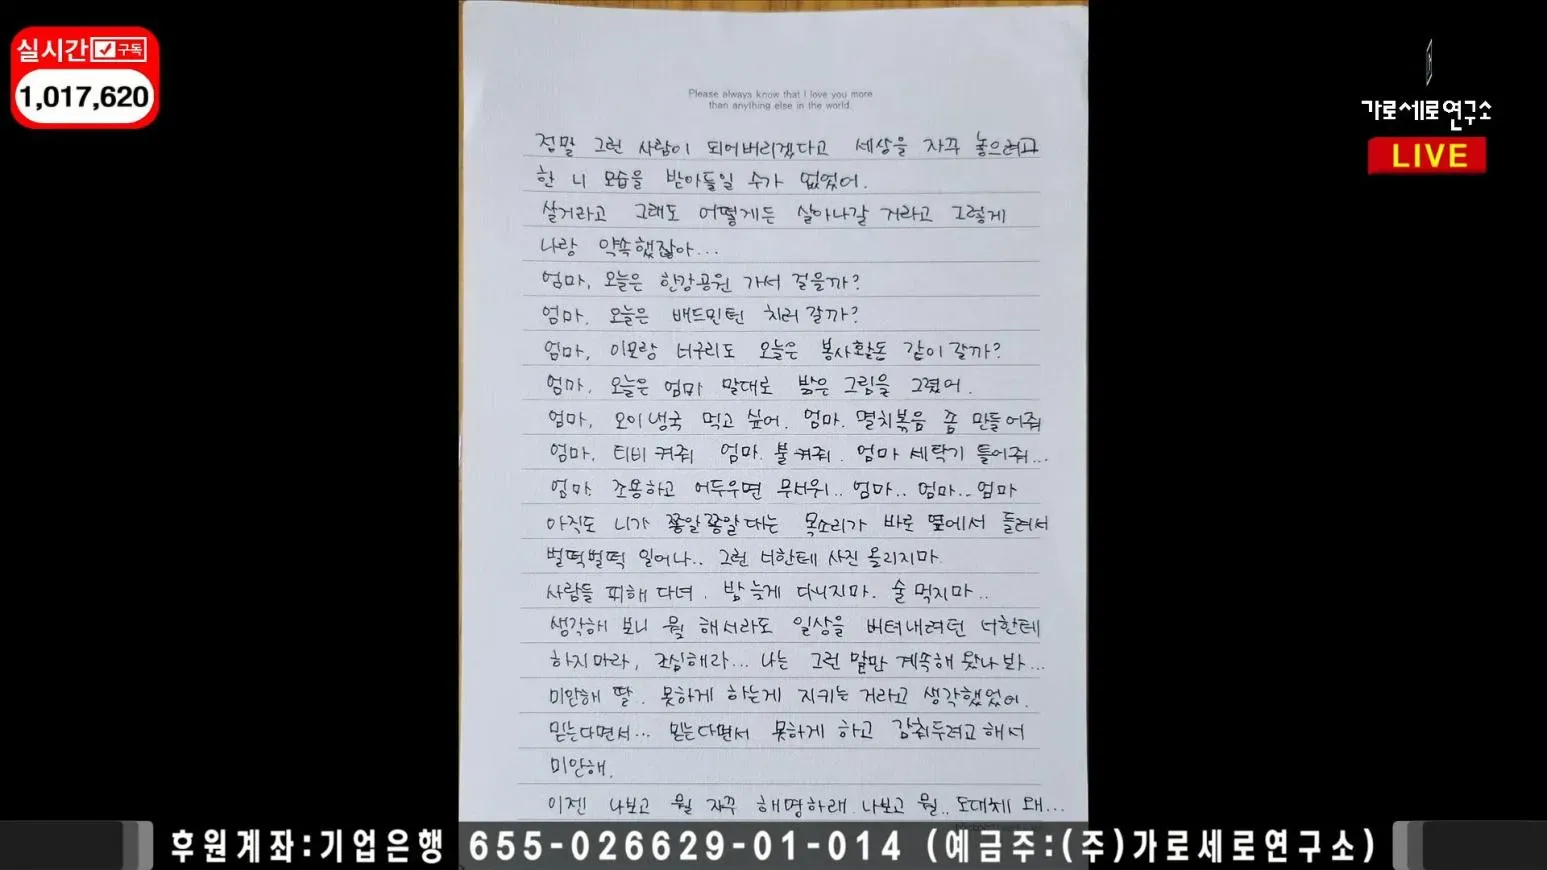 실시간 구독
1,017,620
가로세로연구소
LIVE
Please always know that I love you more
than anything else in the world.
점말 그런 사람이 되어버리겠다고 세상을 자꾸 놓으려고
한 니 모습을 받아들일 수가 없었어.
살거라고 그래도 어떻게든 살아나갈 거라고 그렇게
나랑 약속했잖아...
엄마, 오늘은 한강공원 가서 걸을까?
엄마, 오늘은 배드민턴 치러 갈까?
엄마, 이모랑 너구리도 오늘은 봉사활동 같이 갈까?
엄마, 오늘은 엄마 말대로 밝은 그림을 그렸어.
엄마, 오이냉국 먹고 싶어. 엄마. 멸치볶음 좀 만들어줘
엄마, 티비 켜줘 엄마. 불 켜줘. 엄마 세탁기 틀어줘...
엄마 조용하고 어두우면 무서워.. 엄마.. 엄마.. 엄마
아직도 니가 쫑알쫑알대는 목소리가 바로 옆에서 들려서
벌떡벌떡 일어나.. 그런 너한테 사진 올리지마.
사람들 피해 다녀. 밤 늦게 다니지마. 술 먹지마..
생각해 보니 뭘 해서라도 일상을 버텨내려던 너한테
하지마라, 조심해라... 나는 그런 말만 계속해 왔나 봐...
미안해 딸. 못하게 하는게 지키는 거라고 생각했었어.
믿는다면서... 믿는다면서 못하게 하고 감춰두려고 해서
미안해.
이젠 나보고 뭘 자꾸 해명하래. 나보고 뭘.. 도대체 왜...
후원계좌:기업은행 655-026629-01-014 (예금주:(주)가로세로연구소)